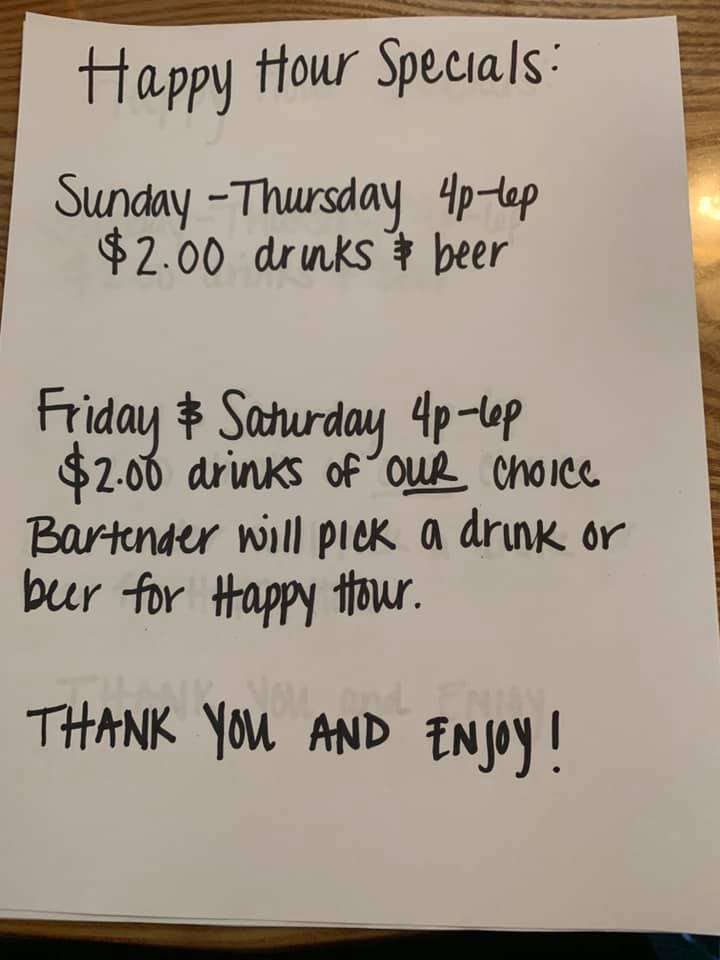 Happy Hour Specials:
Sunday - Thursday 4p-6p
$2.00 drinks & beer
Friday & Saturday 4p-6p
$2.00 drinks of OUR choice
Bartender will pick a drink or
beer for Happy Hour.
THANK YOU AND ENJOY!